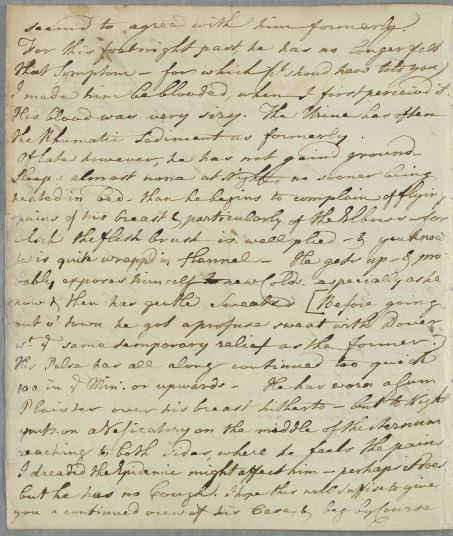 seem'd to agree with him formerly.
For this fortnight past, he has no longer felt
that Symptom – for which (I should have told you)
I made him be blooded, when I first perceived it.
His blood was very sizy. The Urine has often
the Rhumatic Sediment as formerly.
Of late however, he has not gain'd ground –
Sleeps almost none at Night, no sooner being
heated in bed – than he begins to complain of flying
pains of his breast & particularly of the Elbows – for
which the flesh brush is well plied – & you know
he is quite wrapp'd in flannel – He gets up – & pro-
bably exposes himself to new Colds. especially as he
now & then has gentle Sweats [Before going
out o' town he got a profuse sweat with Dover
wt. ye same temporary relief as the former.]
His Pulse has all along continued too quick
100 in ye Min: or upwards – He has worn a Gum
Plaister over his breast hitherto – but to night
puts on a Vesicatory on the middle of the Sternum
reaching to both Sides, where he feels the pains
I dreaded the Epidemic might affect him – perhaps it does
but he has no Cough. I hope this will suffise to give
you a continued view of his Case, & beg by Course